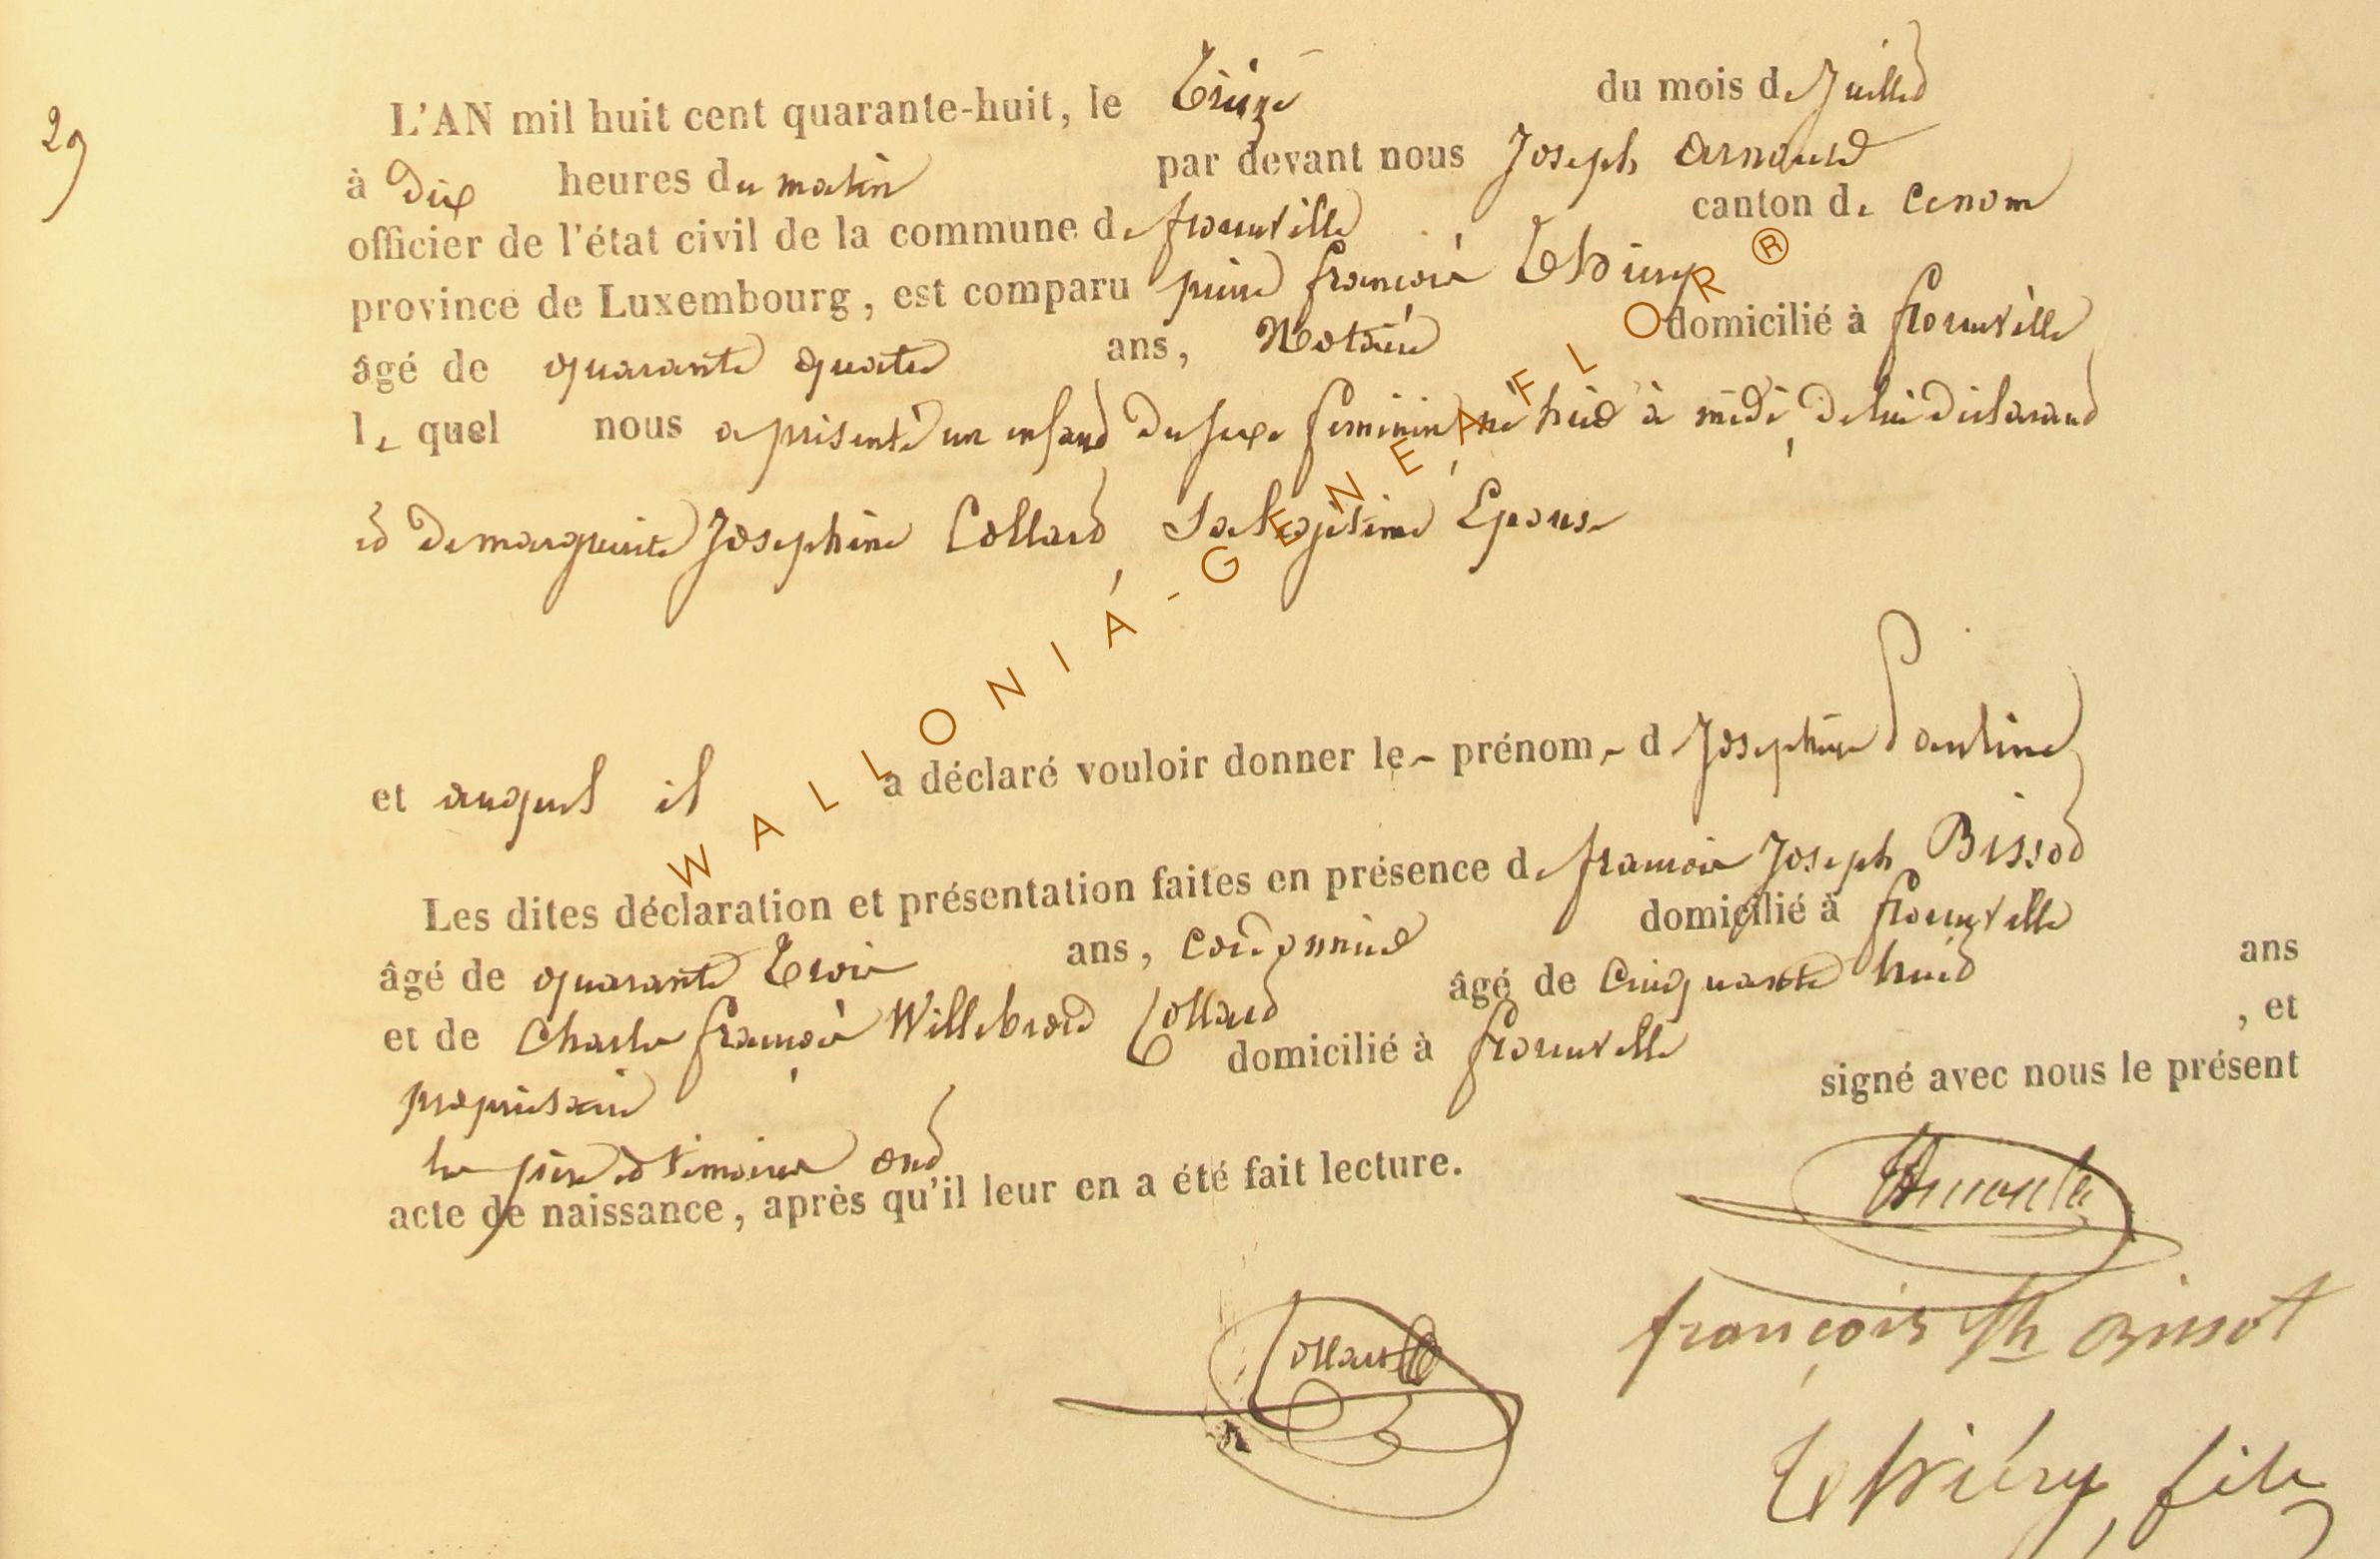 29
L'AN mil huit cent quarante-huit, le treize du mois de Juillet
à Dix heures du matin par devant nous Joseph Arnould
officier de l'état civil de la commune de florenville canton de
province de Luxembourg, est comparu pierre françois Thiery
âgé de quarante quatre ans, Notaire domicilié à florenville
le quel nous a présenté un enfant du sexe feminin, né hier à midi, de lui déclarant
et de marguerite Josephine Collard, Sa légitime Epouse
et auquel il a déclaré vouloir donner les prénoms de Josephine Pauline
Les dites déclaration et présentation faites en présence de françois Joseph Bissot
âgé de quarante trois ans, cordonnier domicilié à florenville
et de Charles françois Willebrord Collard âgé de cinquante huit ans
propriétaire domicilié à florenville , et
les père et témoins ont signé avec nous le présent
acte de naissance, après qu'il leur en a été fait lecture.
Collard
françois Jh Bissot
Thiéry, fils
WALLONIA-GENEAFLOR ®